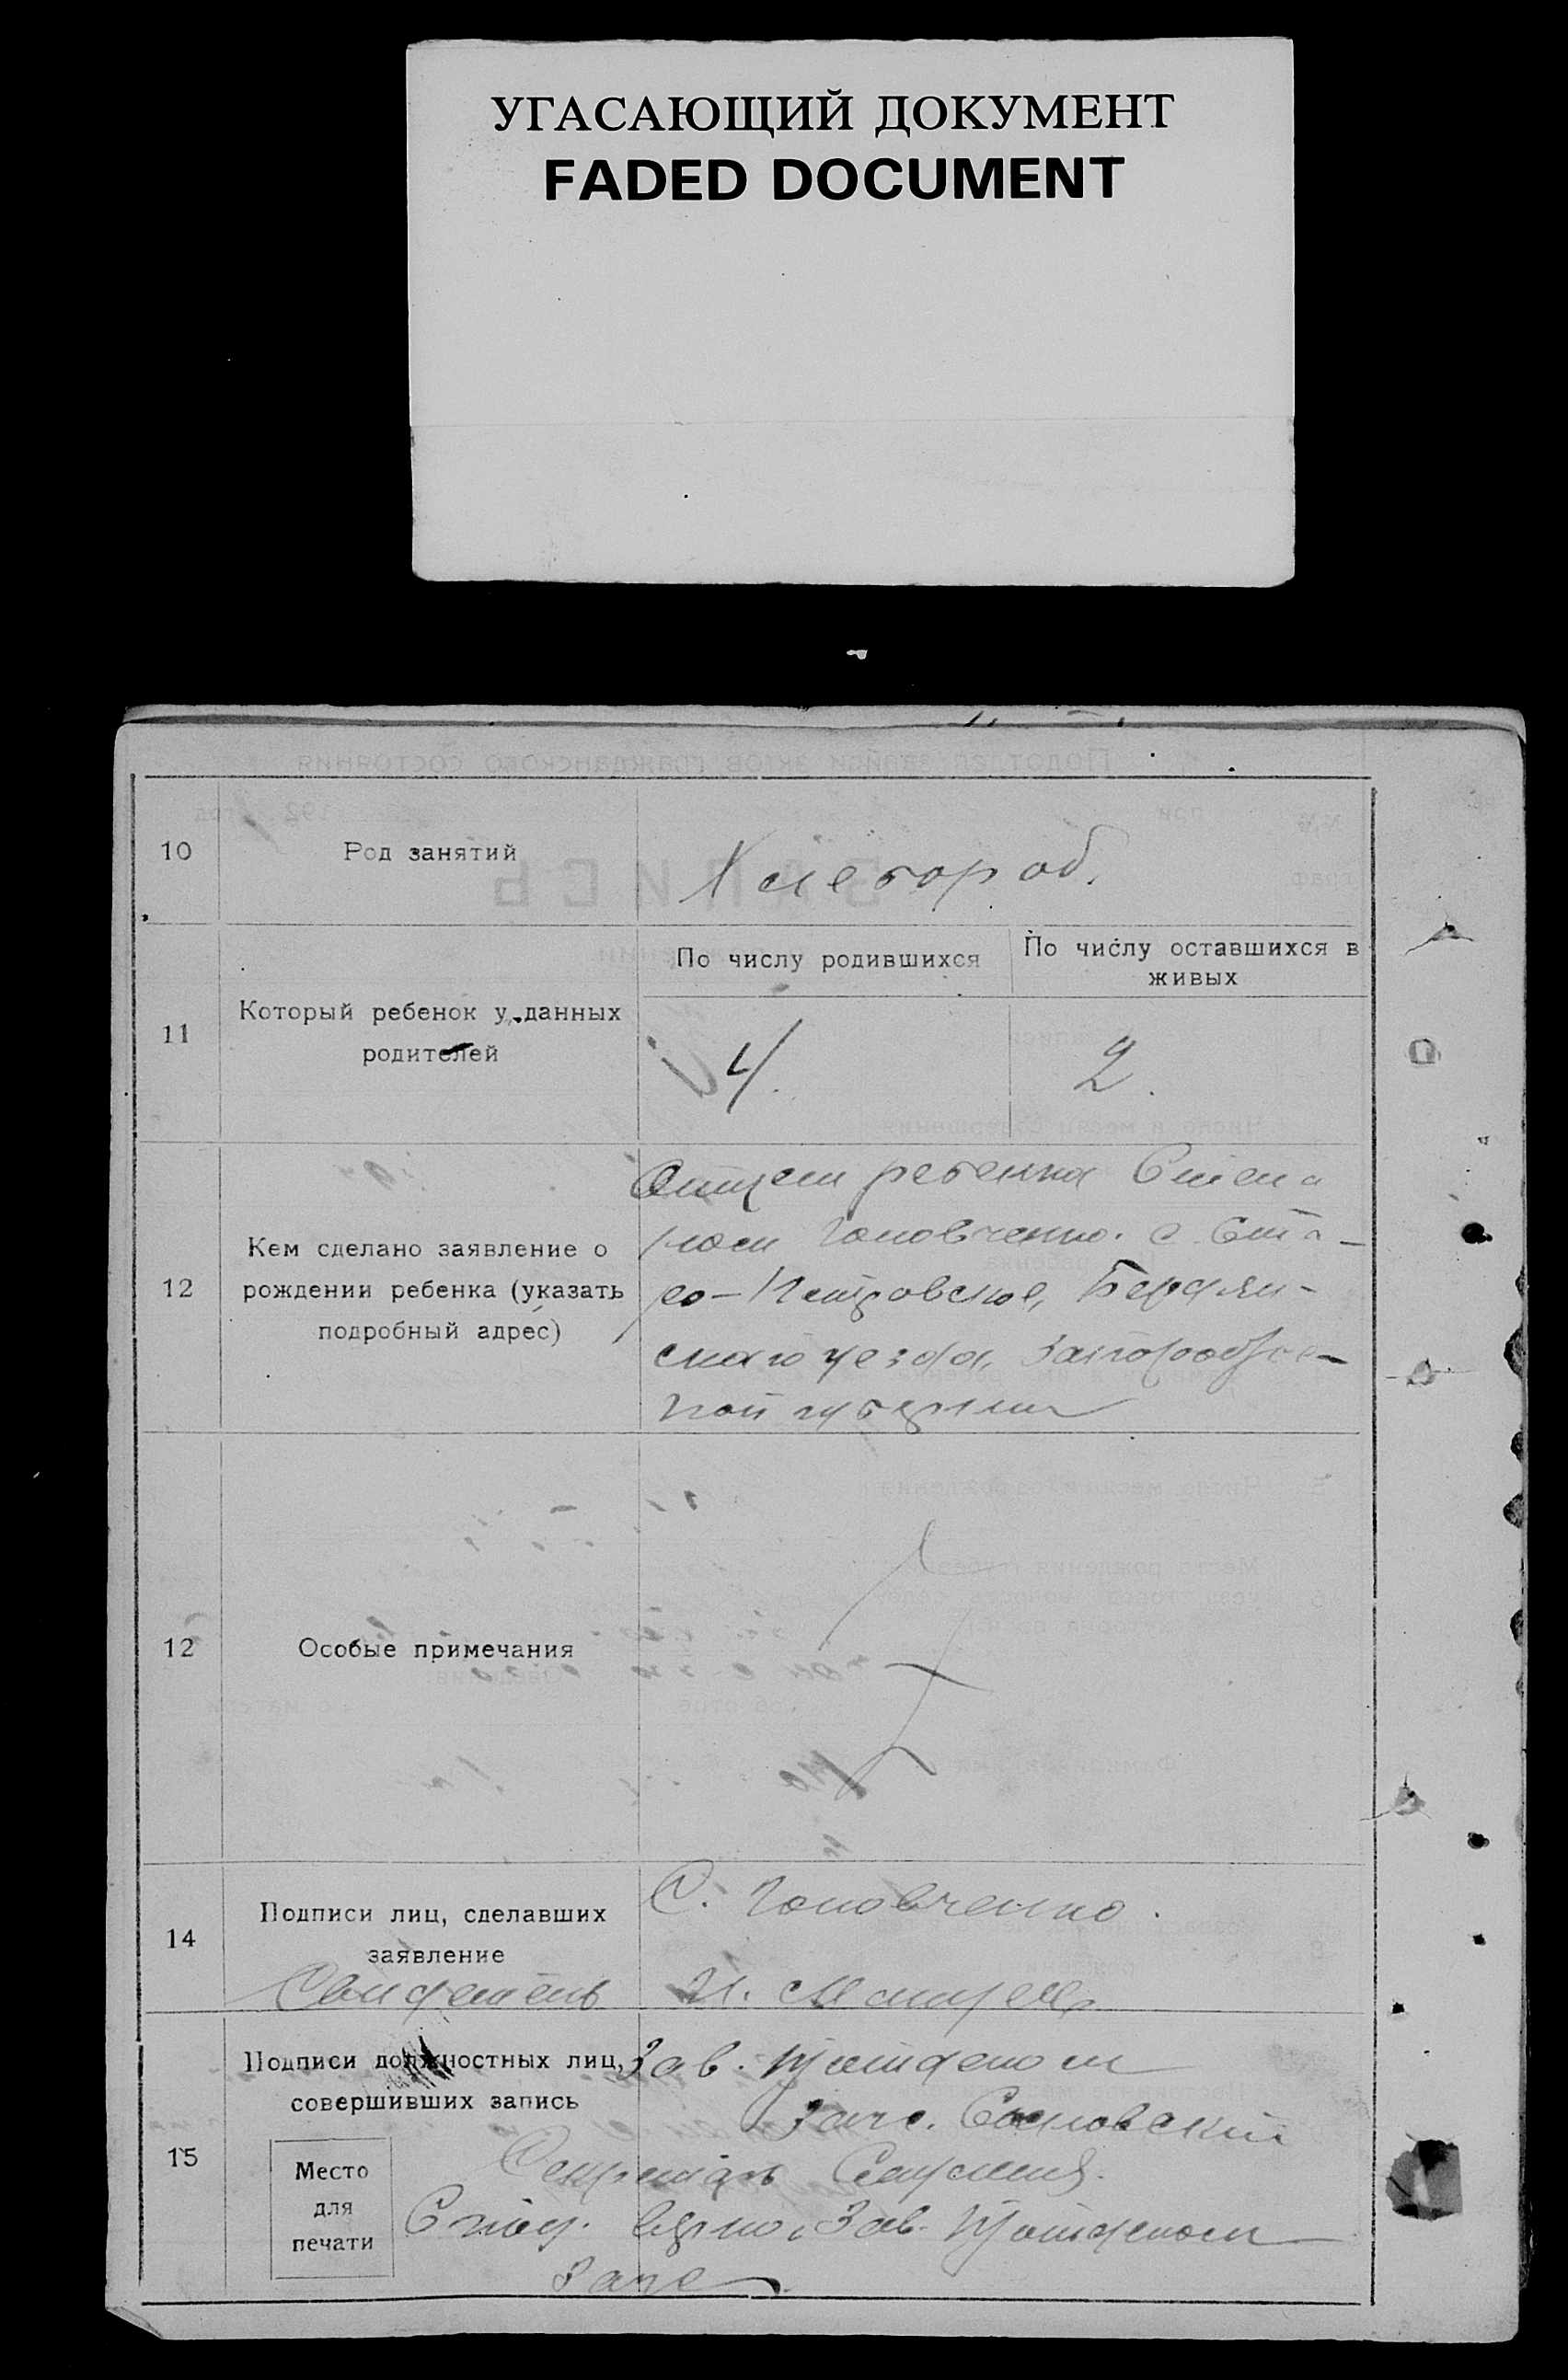 УГАСАЮЩИЙ ДОКУМЕНТ
FADED DOCUMENT
10
Род занятий
Хлебороб.
11
Который ребенок у данных
родителей
По числу родившихся
По числу оставшихся в
живых
4.
2.
12
Кем сделано заявление о
рождении ребенка (указать
подробный адрес)
Отцем ребенка Степа
ном Головченко. с. Ста-
ро-Петровское, Бердян-
скаго уезда,
губернии
12
Особые примечания
14
Подписи лиц, сделавших
заявление
С. Головченко.
Свидетель И.
15
Подписи должностных лиц,
совершивших запись
Место
для
печати
Зав. П/отделом
Сосновский
Секретарь
верно. Зав. П/отделом